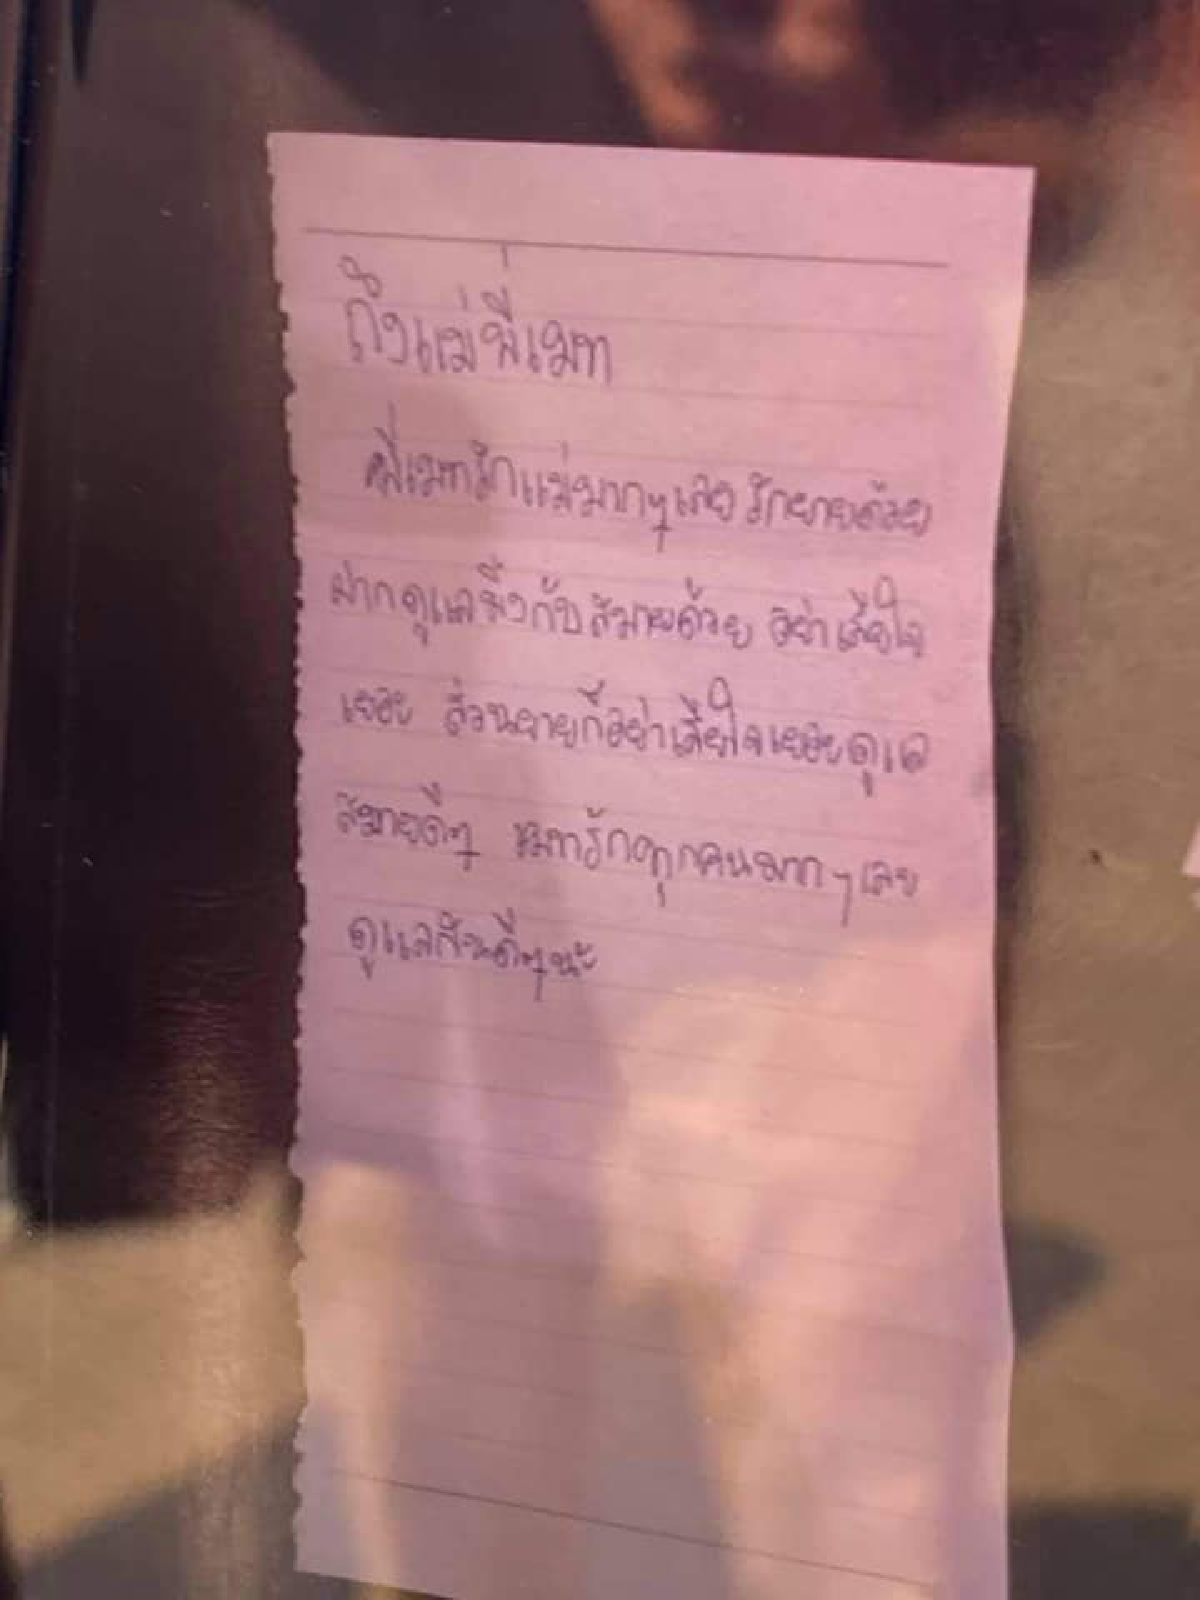 ถึงแม่พี่เมท
พี่เมทรักแม่มากๆเลย รักยายด้วย
ฝากดูแลพี่งกับสมายด้วย อย่าเสียใจ
เยอะ ส่วนยายก็อย่าเสียใจเยอะดูแล
สมายดีๆ เมทรักทุกคนมากๆเลย
ดูแลกันดีๆนะ